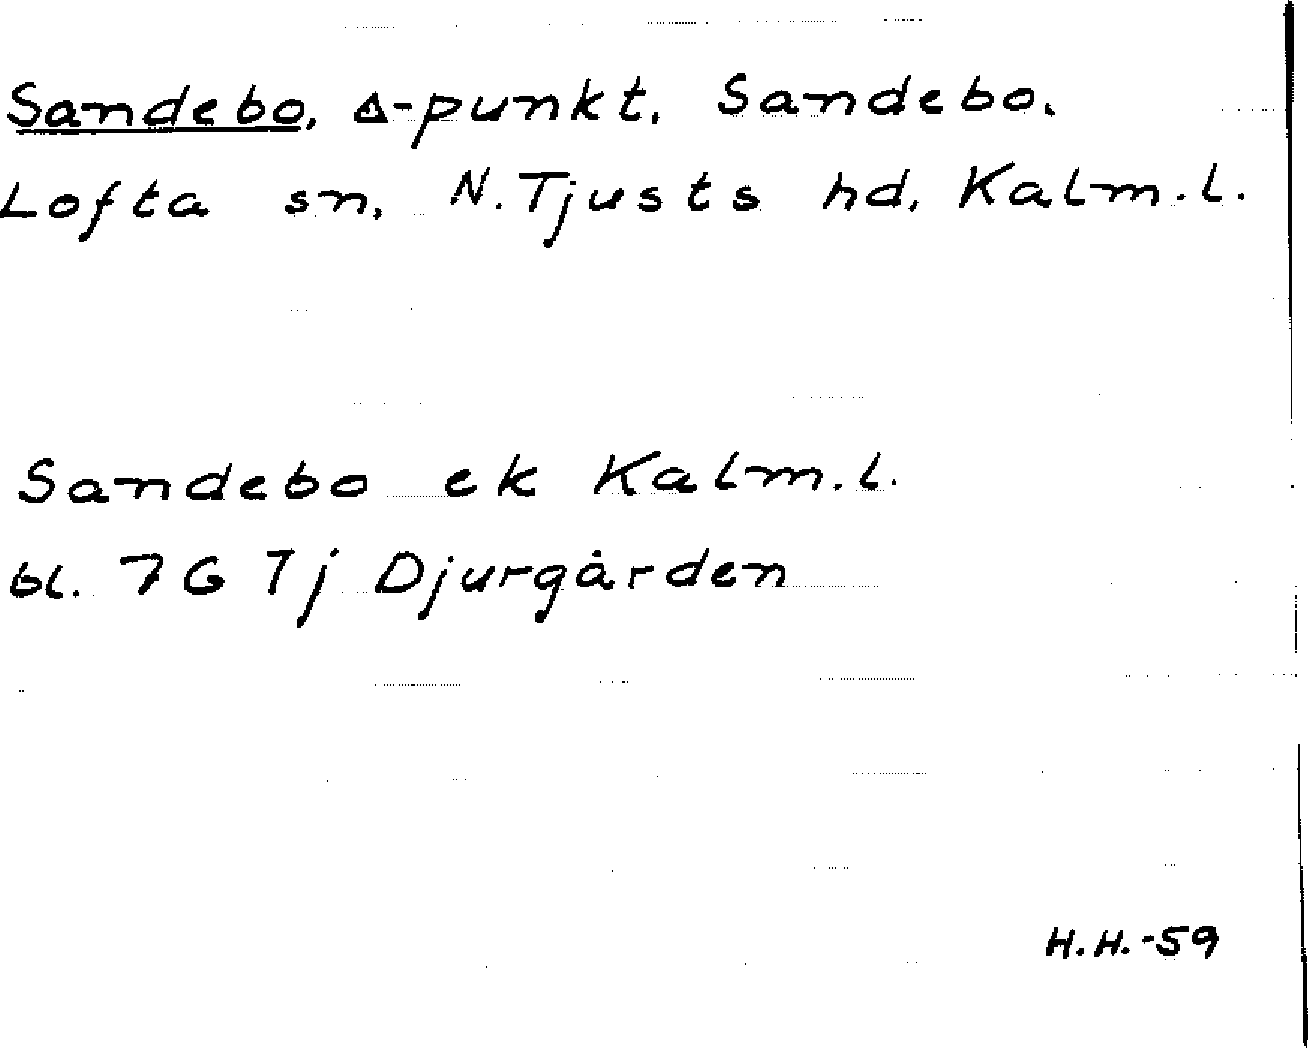 Sandebo, △-punkt, Sandebo.
Lofta sn, N. Tjusts hd, Kalm.l.
Sandebo ek Kalm.l.
bl. 7G 7j Djurgården
H.H.-59